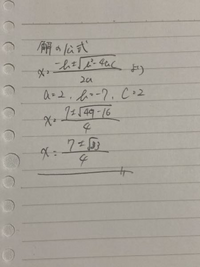 解の公式
x = (-b±√(b²-4ac))/2a より
a=2, b=-7, c=2
x = (7±√(49-16))/4
x = (7±√33)/4